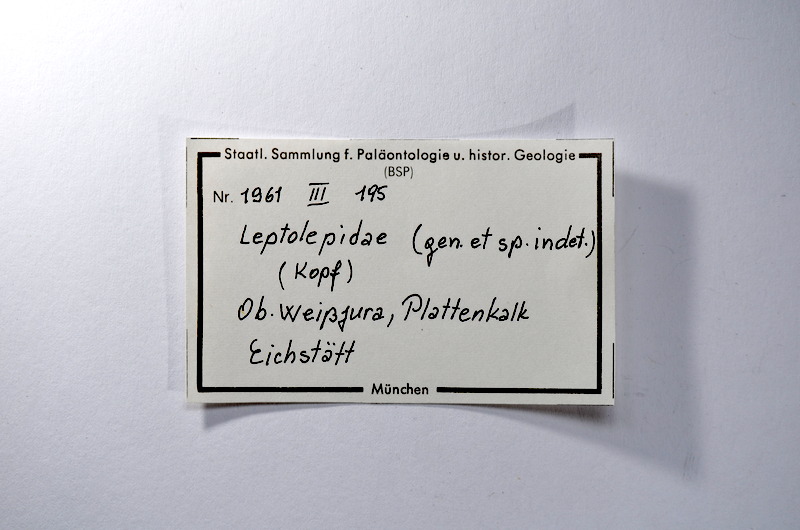 Staatl. Sammlung f. Paläontologie u. histor. Geologie
(BSP)
Nr. 1961 III 195
Leptolepidae (gen. et sp. indet.)
(Kopf)
Ob. Weißjura, Plattenkalk
Eichstätt
München